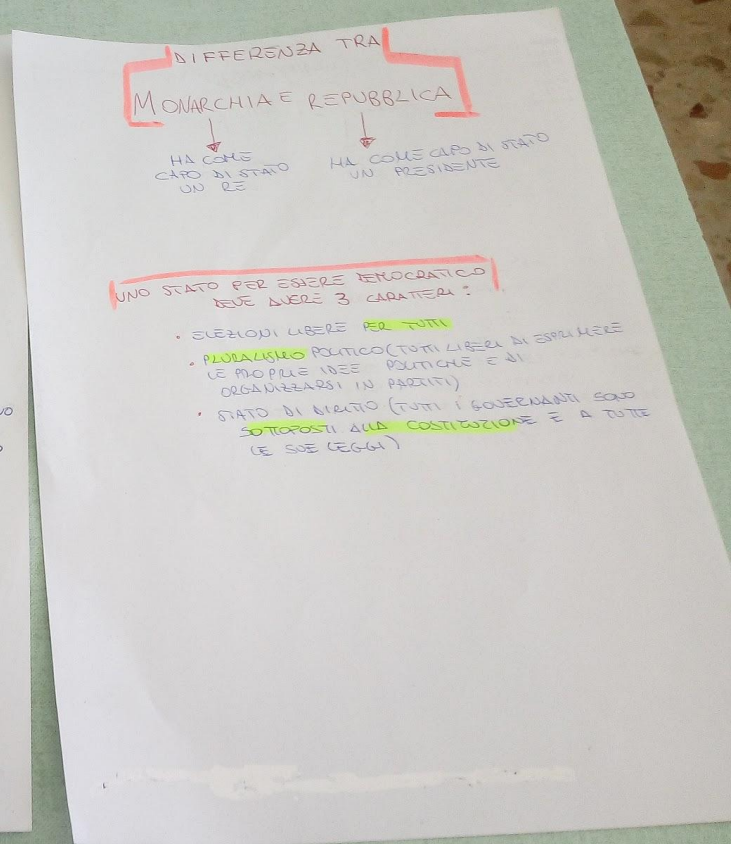 DIFFERENZA TRA
MONARCHIA E REPUBBLICA
HA COME
CAPO DI STATO
UN RE
HA COME CAPO DI STATO
UN PRESIDENTE
UNO STATO PER ESSERE DEMOCRATICO
DEVE AVERE 3 CARATTERI:
• ELEZIONI LIBERE PER TUTTI
• PLURALISMO POLITICO (TUTTI LIBERI DI ESPRIMERE
LE PROPRIE IDEE POLITICHE E DI
ORGANIZZARSI IN PARTITI)
• STATO DI DIRITTO (TUTTI I GOVERNANTI SONO
SOTTOPOSTI ALLA COSTITUZIONE E A TUTTE
LE SUE LEGGI)